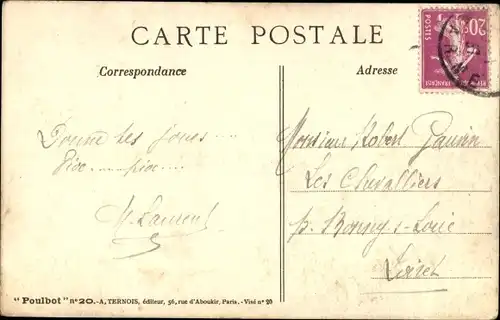 CARTE POSTALE
Correspondance
Adresse
20c
POSTES
FRANÇAISE
Donne tes joues...
Pice...... pice....
M. Laurent
Monsieur Robert Gauvin
Les Chevalliers
p. Bonny s. Loire
Loiret
"Poulbot" n° 20.-A, TERNOIS, éditeur, 56, rue d'Aboukir, Paris.-Visé n° 20